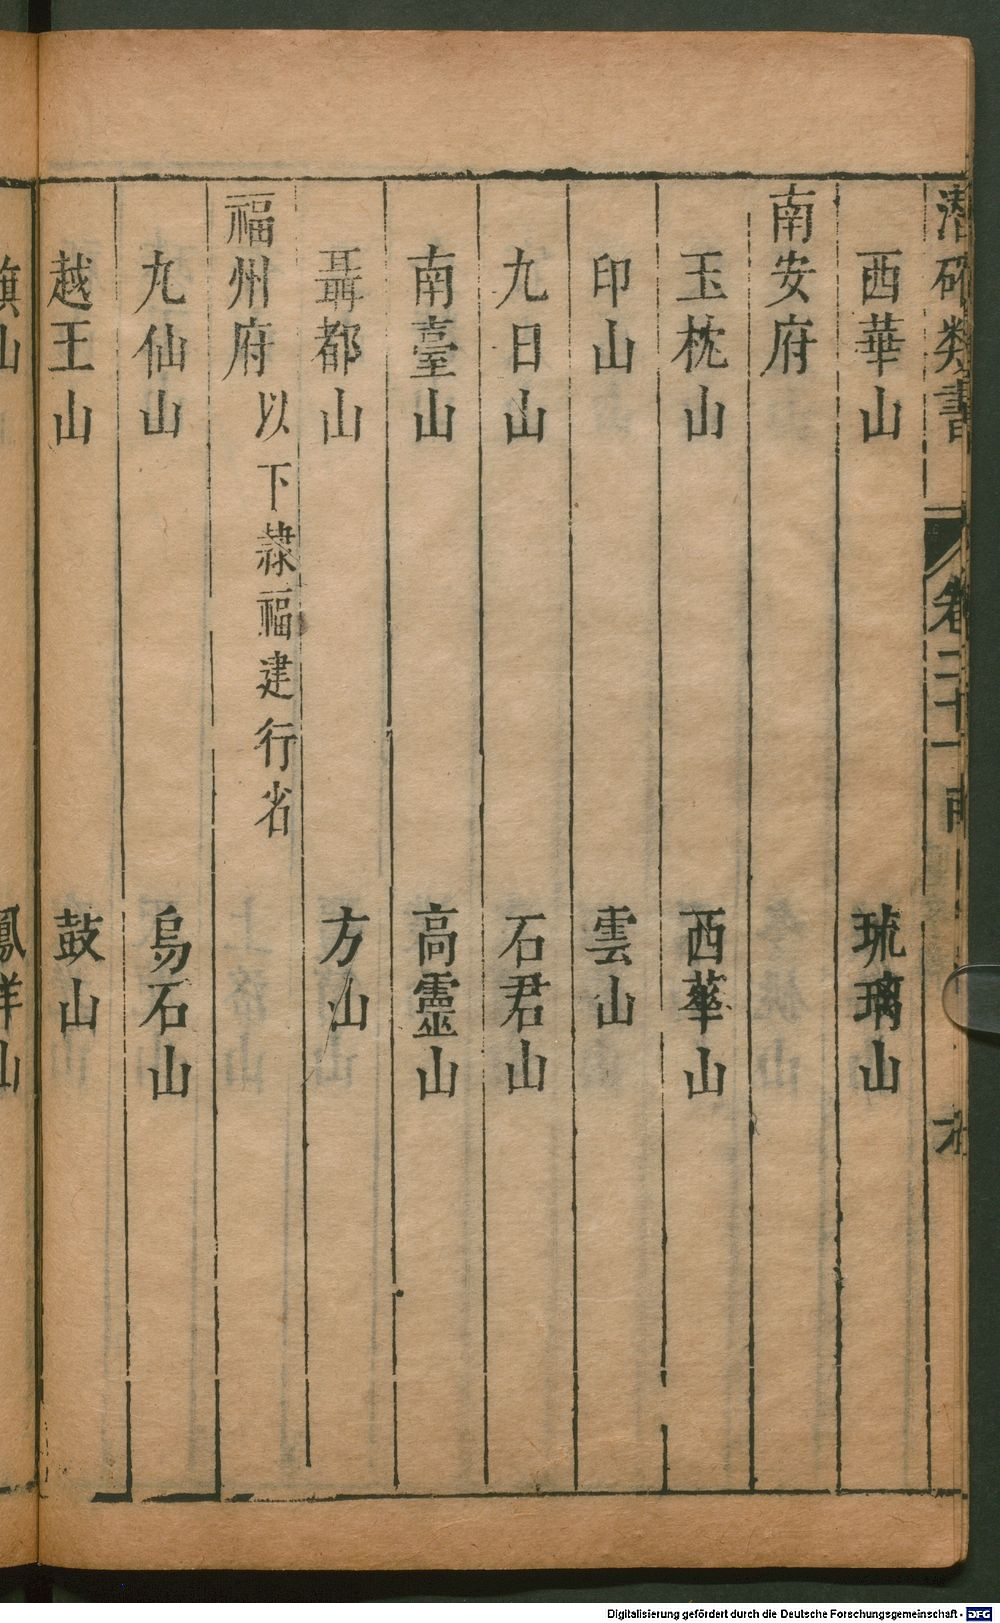 潛確類書 卷三十一
西華山 琉璃山
南安府
玉枕山 西華山
印山 雲山
九日山 石君山
南臺山 高靈山
聶都山 方山
福州府 以下隸福建行省
九仙山 烏石山
越王山 鼓山
旗山
Digitalisierung gefördert durch die Deutsche Forschungsgemeinschaft - DFG